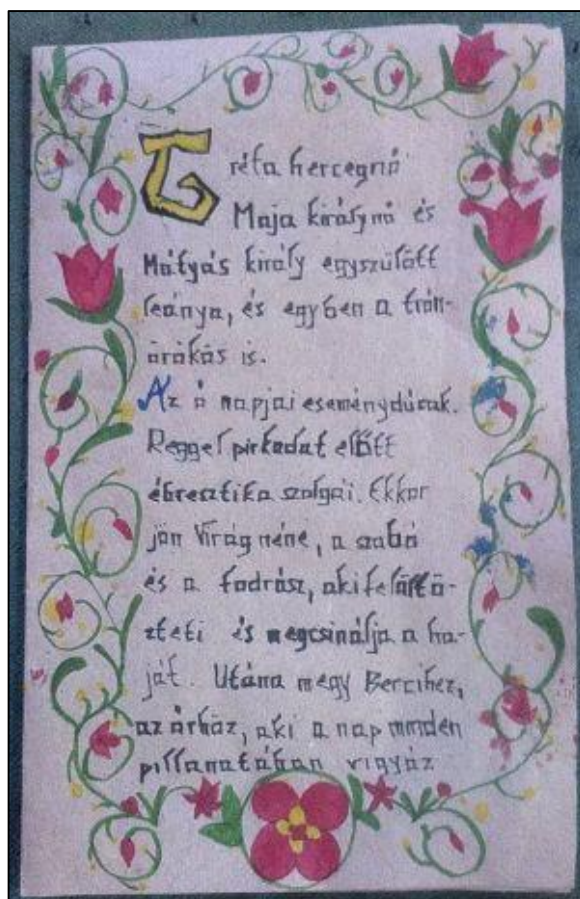 Gréta hercegnő
Maja királynő és
Mátyás király egyszülött
leánya, és egyben a trón-
örökös is.
Az ő napjai eseménydúsak.
Reggel pirkadat előtt
ébresztik a szolgái. Ekkor
jön Virág néne, a szabó
és a fodrász, aki felöltö-
zteti és megcsinálja a ha-
ját. Utána megy Bercihez,
az őrhöz, aki a nap minden
pillanatában vigyáz